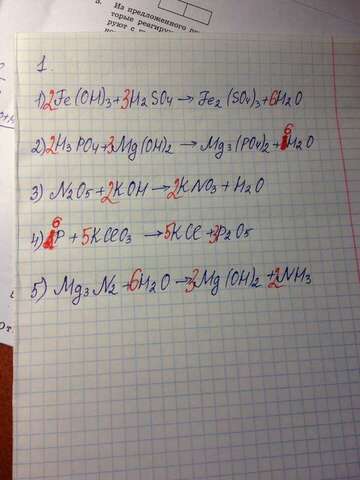 Из предложенного
торые реагиру
руют с
1.
1) 2Fe(OH)3+3H2SO4→Fe2(SO4)3+6H2O
2) 2H3PO4+3Mg(OH)2→Mg3(PO4)2+6H2O
3) N2O5+2KOH→2KNO3+H2O
4) 6P+5KClO3→5KCl+3P2O5
5) Mg3N2+6H2O→3Mg(OH)2+2NH3